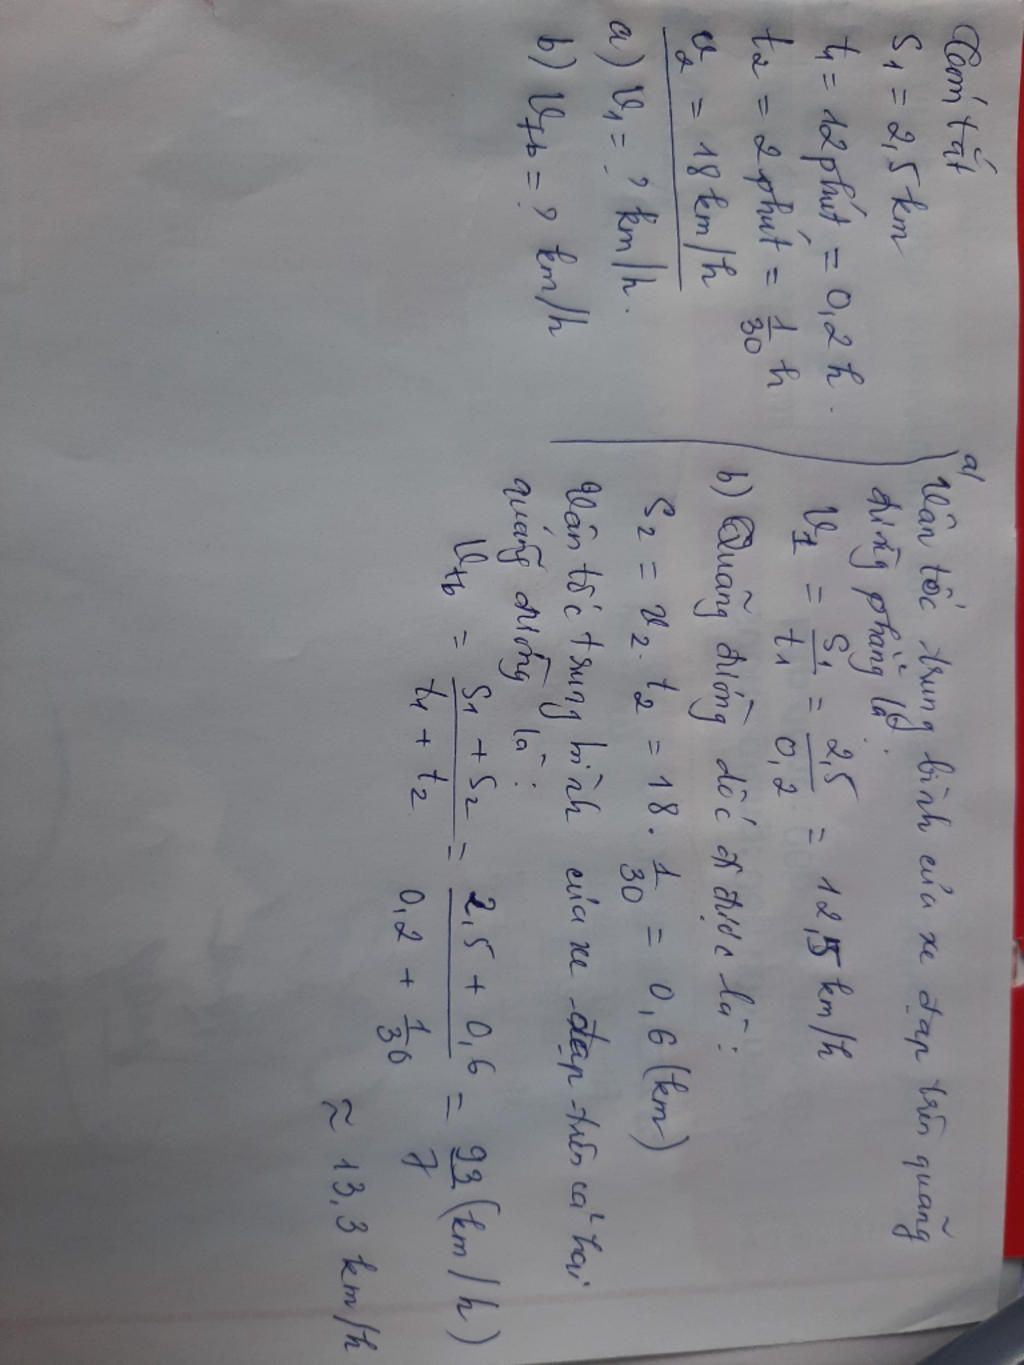 Tóm tắt
S1 = 2,5 km
t1 = 12 phút = 0,2 h.
t2 = 2 phút = 1/30 h
v2 = 18 km/h
a) V1 = ? km/h.
b) Vtb = ? km/h
a) Vận tốc trung bình của xe đạp trên quãng
đường phẳng là:
V1 = S1/t1 = 2,5/0,2 = 12,5 km/h
b) Quãng đường dốc đi được là:
S2 = v2 . t2 = 18 . 1/30 = 0,6 (km)
Vận tốc trung bình của xe đạp trên cả hai
quãng đường là:
Vtb = S1 + S2/t1 + t2 = 2,5 + 0,6/0,2 + 1/30 = 93/7 (km/h)
≈ 13,3 km/h